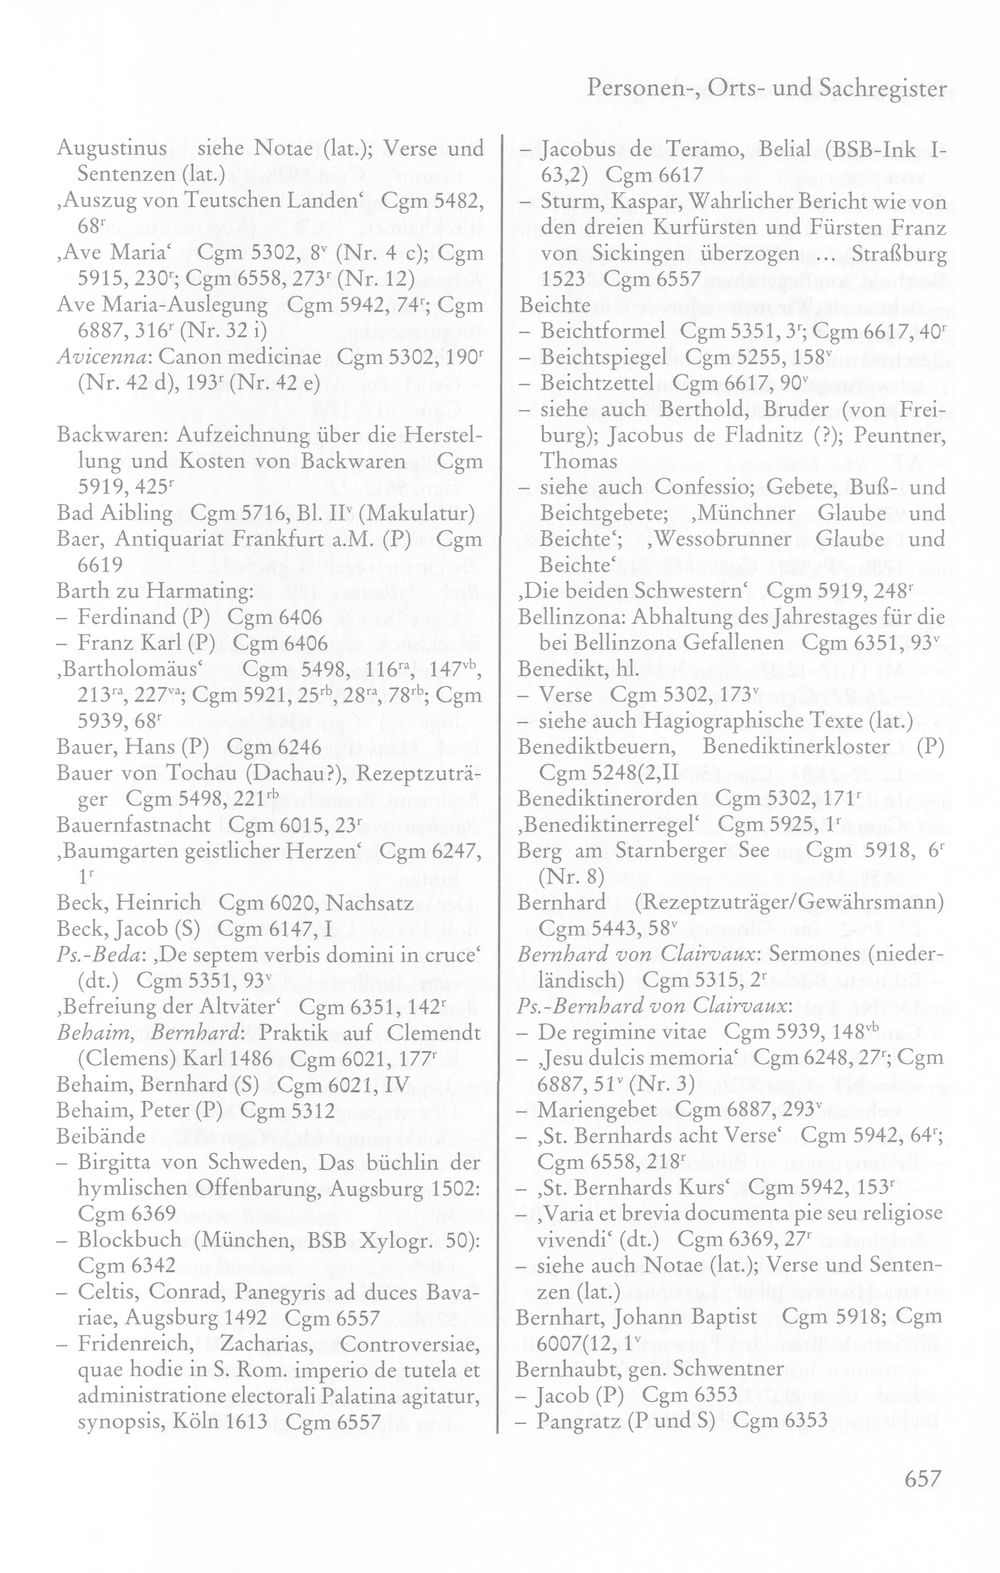 Personen-, Orts- und Sachregister
Augustinus siehe Notae (lat.); Verse und
Sentenzen (lat.)
‚Auszug von Teutschen Landen‘ Cgm 5482,
68ʳ
‚Ave Maria‘ Cgm 5302, 8ᵛ (Nr. 4 c); Cgm
5915, 230ʳ; Cgm 6558, 273ʳ (Nr. 12)
Ave Maria-Auslegung Cgm 5942, 74ʳ; Cgm
6887, 316ʳ (Nr. 32 i)
Avicenna: Canon medicinae Cgm 5302, 190ʳ
(Nr. 42 d), 193ʳ (Nr. 42 e)
Backwaren: Aufzeichnung über die Herstel-
lung und Kosten von Backwaren Cgm
5919, 425ʳ
Bad Aibling Cgm 5716, Bl. IIᵛ (Makulatur)
Baer, Antiquariat Frankfurt a.M. (P) Cgm
6619
Barth zu Harmating:
– Ferdinand (P) Cgm 6406
– Franz Karl (P) Cgm 6406
‚Bartholomäus‘ Cgm 5498, 116ʳᵃ, 147ᵛᵇ,
213ʳᵃ, 227ᵛᵃ; Cgm 5921, 25ʳᵇ, 28ʳᵃ, 78ʳᵇ; Cgm
5939, 68ʳ
Bauer, Hans (P) Cgm 6246
Bauer von Tochau (Dachau?), Rezeptzuträ-
ger Cgm 5498, 221ʳᵇ
Bauernfastnacht Cgm 6015, 23ʳ
‚Baumgarten geistlicher Herzen‘ Cgm 6247,
1ʳ
Beck, Heinrich Cgm 6020, Nachsatz
Beck, Jacob (S) Cgm 6147, I
Ps.-Beda: ‚De septem verbis domini in cruce‘
(dt.) Cgm 5351, 93ᵛ
‚Befreiung der Altväter‘ Cgm 6351, 142ʳ
Behaim, Bernhard: Praktik auf Clemendt
(Clemens) Karl 1486 Cgm 6021, 177ʳ
Behaim, Bernhard (S) Cgm 6021, IV
Behaim, Peter (P) Cgm 5312
Beibände
– Birgitta von Schweden, Das büchlin der
hymlischen Offenbarung, Augsburg 1502:
Cgm 6369
– Blockbuch (München, BSB Xylogr. 50):
Cgm 6342
– Celtis, Conrad, Panegyris ad duces Bava-
riae, Augsburg 1492 Cgm 6557
– Fridenreich, Zacharias, Controversiae,
quae hodie in S. Rom. imperio de tutela et
administratione electorali Palatina agitatur,
synopsis, Köln 1613 Cgm 6557
– Jacobus de Teramo, Belial (BSB-Ink I-
63,2) Cgm 6617
– Sturm, Kaspar, Wahrlicher Bericht wie von
den dreien Kurfürsten und Fürsten Franz
von Sickingen überzogen ... Straßburg
1523 Cgm 6557
Beichte
– Beichtformel Cgm 5351, 3ʳ; Cgm 6617, 40ʳ
– Beichtspiegel Cgm 5255, 158ᵛ
– Beichtzettel Cgm 6617, 90ᵛ
– siehe auch Berthold, Bruder (von Frei-
burg); Jacobus de Fladnitz (?); Peuntner,
Thomas
– siehe auch Confessio; Gebete, Buß- und
Beichtgebete; ‚Münchner Glaube und
Beichte‘; ‚Wessobrunner Glaube und
Beichte‘
‚Die beiden Schwestern‘ Cgm 5919, 248ʳ
Bellinzona: Abhaltung des Jahrestages für die
bei Bellinzona Gefallenen Cgm 6351, 93ᵛ
Benedikt, hl.
– Verse Cgm 5302, 173ᵛ
– siehe auch Hagiographische Texte (lat.)
Benediktbeuern, Benediktinerkloster (P)
Cgm 5248(2,II
Benediktinerorden Cgm 5302, 171ʳ
‚Benediktinerregel‘ Cgm 5925, 1ʳ
Berg am Starnberger See Cgm 5918, 6ʳ
(Nr. 8)
Bernhard (Rezeptzuträger/Gewährsmann)
Cgm 5443, 58ᵛ
Bernhard von Clairvaux: Sermones (nieder-
ländisch) Cgm 5315, 2ʳ
Ps.-Bernhard von Clairvaux:
– De regimine vitae Cgm 5939, 148ᵛᵇ
– ‚Jesu dulcis memoria‘ Cgm 6248, 27ʳ; Cgm
6887, 51ᵛ (Nr. 3)
– Mariengebet Cgm 6887, 293ᵛ
– ‚St. Bernhards acht Verse‘ Cgm 5942, 64ʳ;
Cgm 6558, 218ʳ
– ‚St. Bernhards Kurs‘ Cgm 5942, 153ʳ
– ‚Varia et brevia documenta pie seu religiose
vivendi‘ (dt.) Cgm 6369, 27ʳ
– siehe auch Notae (lat.); Verse und Senten-
zen (lat.)
Bernhart, Johann Baptist Cgm 5918; Cgm
6007(12, 1ᵛ
Bernhaubt, gen. Schwentner
– Jacob (P) Cgm 6353
– Pangratz (P und S) Cgm 6353
657